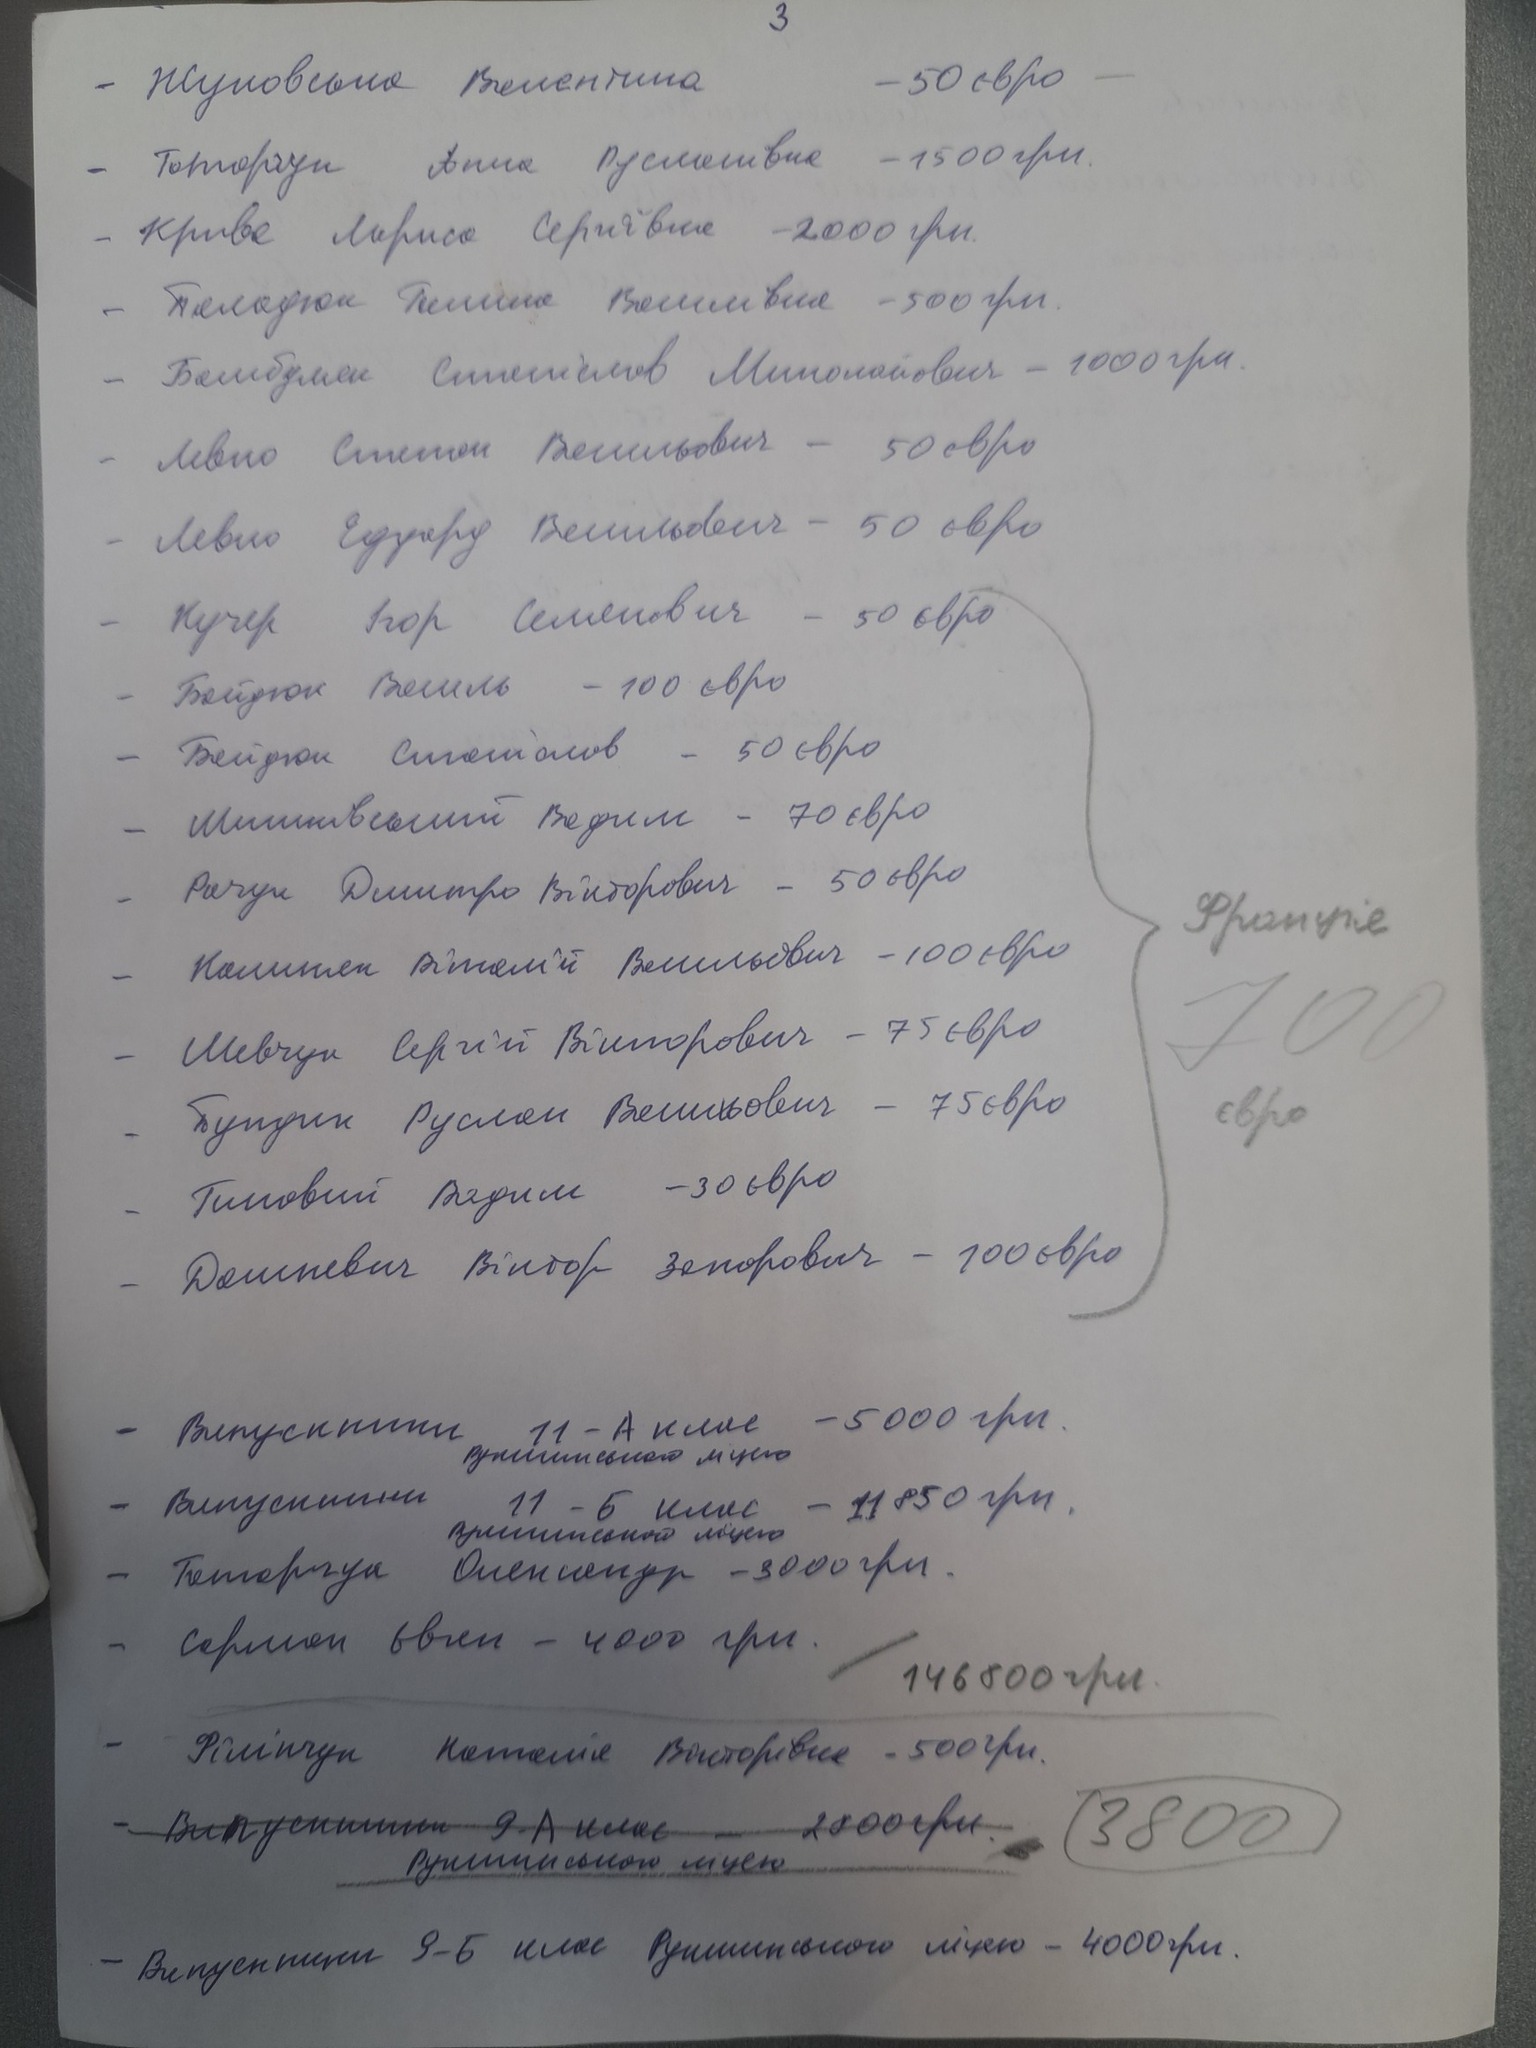 3
- Жуковська Валентина - 50 євро -
- Гончарук Анна Русланівна - 1500 грн.
- Крива Лариса Сергіївна - 2000 грн.
- Паладюк Галина Василівна - 500 грн.
- Бамбуляк Станіслав Миколайович - 1000 грн.
- Левко Степан Васильович - 50 євро
- Левко Едуард Васильович - 50 євро
- Кучер Ігор Семенович - 50 євро
- Байдюк Василь - 100 євро
- Байдюк Станіслав - 50 євро
- Вадим - 70 євро
- Рачук Дмитро Вікторович - 50 євро
Франція
- Калиняк Віталій Васильович - 100 євро
700
- Шевчук Сергій Вікторович - 75 євро
- Руслан Васильович - 75 євро
євро
- Вадим - 30 євро
- Дашкевич Віктор Захорович - 100 євро
- Випускники 11-А клас - 5000 грн.
Рукшинського ліцею
- Випускники 11-Б клас - 11850 грн.
Рукшинського ліцею
- Олександр - 3000 грн.
- Сарман Євген - 4000 грн.
146800 грн.
- Філіпчук Наталія Вікторівна - 500 грн.
- Випускники 9-А клас - 2800 грн. 3800
Рукшинського ліцею
- Випускники 9-Б клас Рукшинського ліцею - 4000 грн.